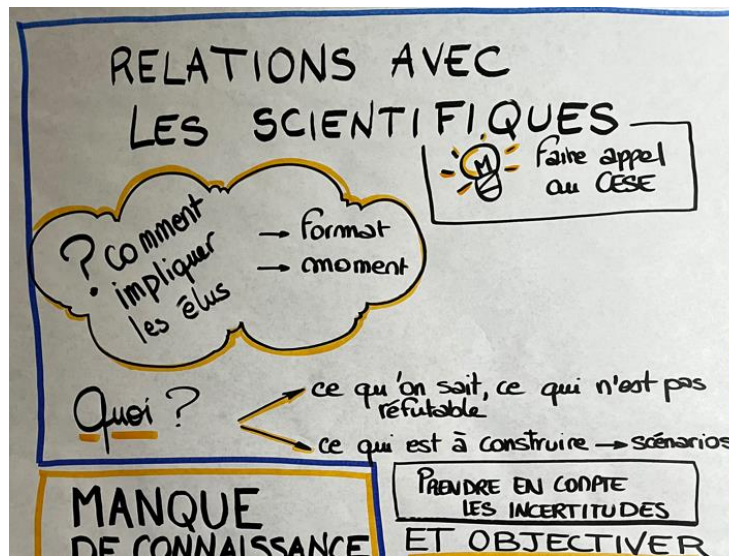 RELATIONS AVEC
LES SCIENTIFIQUES
Faire appel
au CESE
? comment
impliquer
les élus
→ format
→ moment
Quoi ?
ce qu'on sait, ce qui n'est pas
réfutable
ce qui est à construire → scénarios
MANQUE
DE CONNAISSANCE
PRENDRE EN COMPTE
LES INCERTITUDES
ET OBJECTIVER